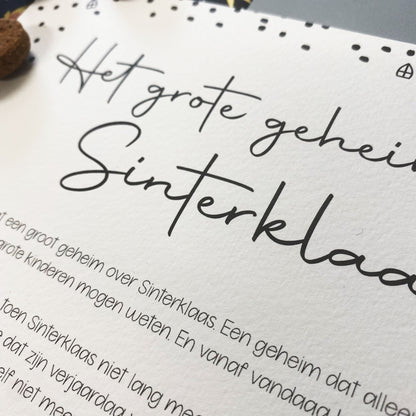 Het grote geheim
Sinterklaa
een groot geheim over Sinterklaas. Een geheim dat alleen
grote kinderen mogen weten. En vanaf vandaag
toen Sinterklaas niet lang mee
dat zijn verjaardag
elf niet mee